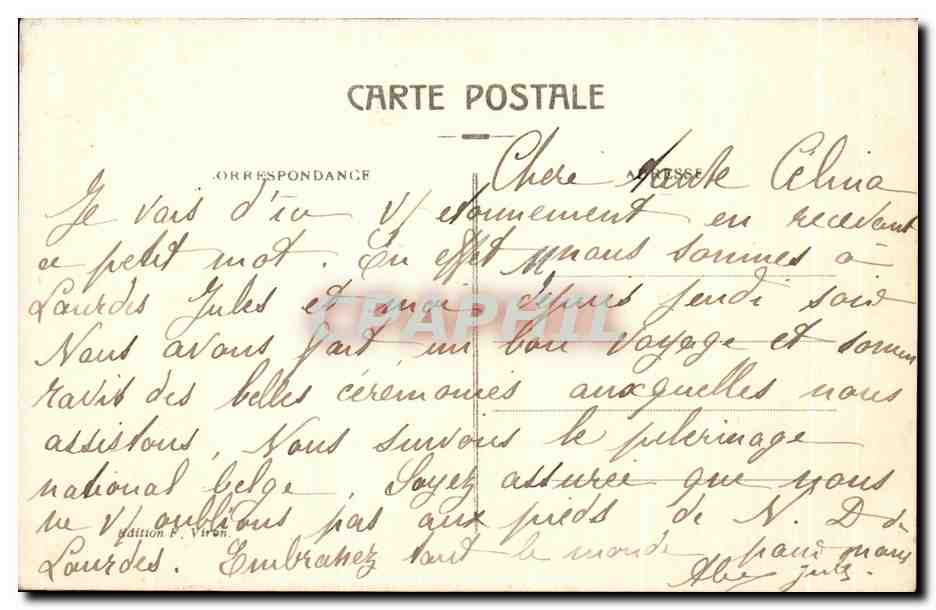 CARTE POSTALE
CORRESPONDANCE
ADRESSE
Chère tante Célina
Je vois d'ici v/ etonnement en recevant
ce petit mot. En effet nous sommes à
Lourdes Jules et moi depuis jeudi soir
Nous avons fait un bon voyage et sommes
ravis des belles cérémonies auxquelles nous
assistons. Nous suivons le pélerinage
national belge. Soyez assurée que nous
ne v/ oublions pas aux pieds de N. D de
Lourdes. Embrassez tout le monde pour nous
Jules.
Edition F. Viron.
CPAPHIL